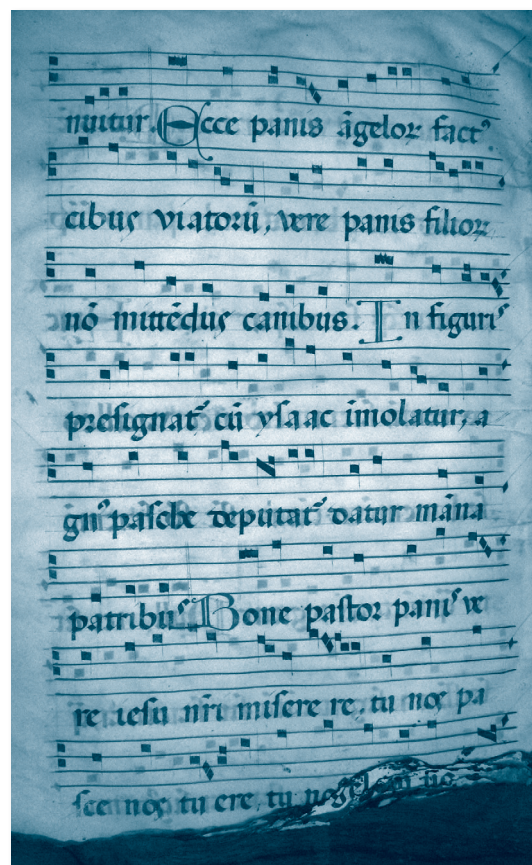 nuitur. Ecce panis āgelorꝝ fact᾽
cibus viatorū, vere panis filiorꝝ
nō mittēdus canibus. In figuris
presignat᾽ cū ysaac imolatur, a
gn᾽ pasche deputat᾽ datur māna
patribus Bone pastor panis ve
re iesu nr̄i miserere re. tu nos pa
sce nos tu ere tu nos